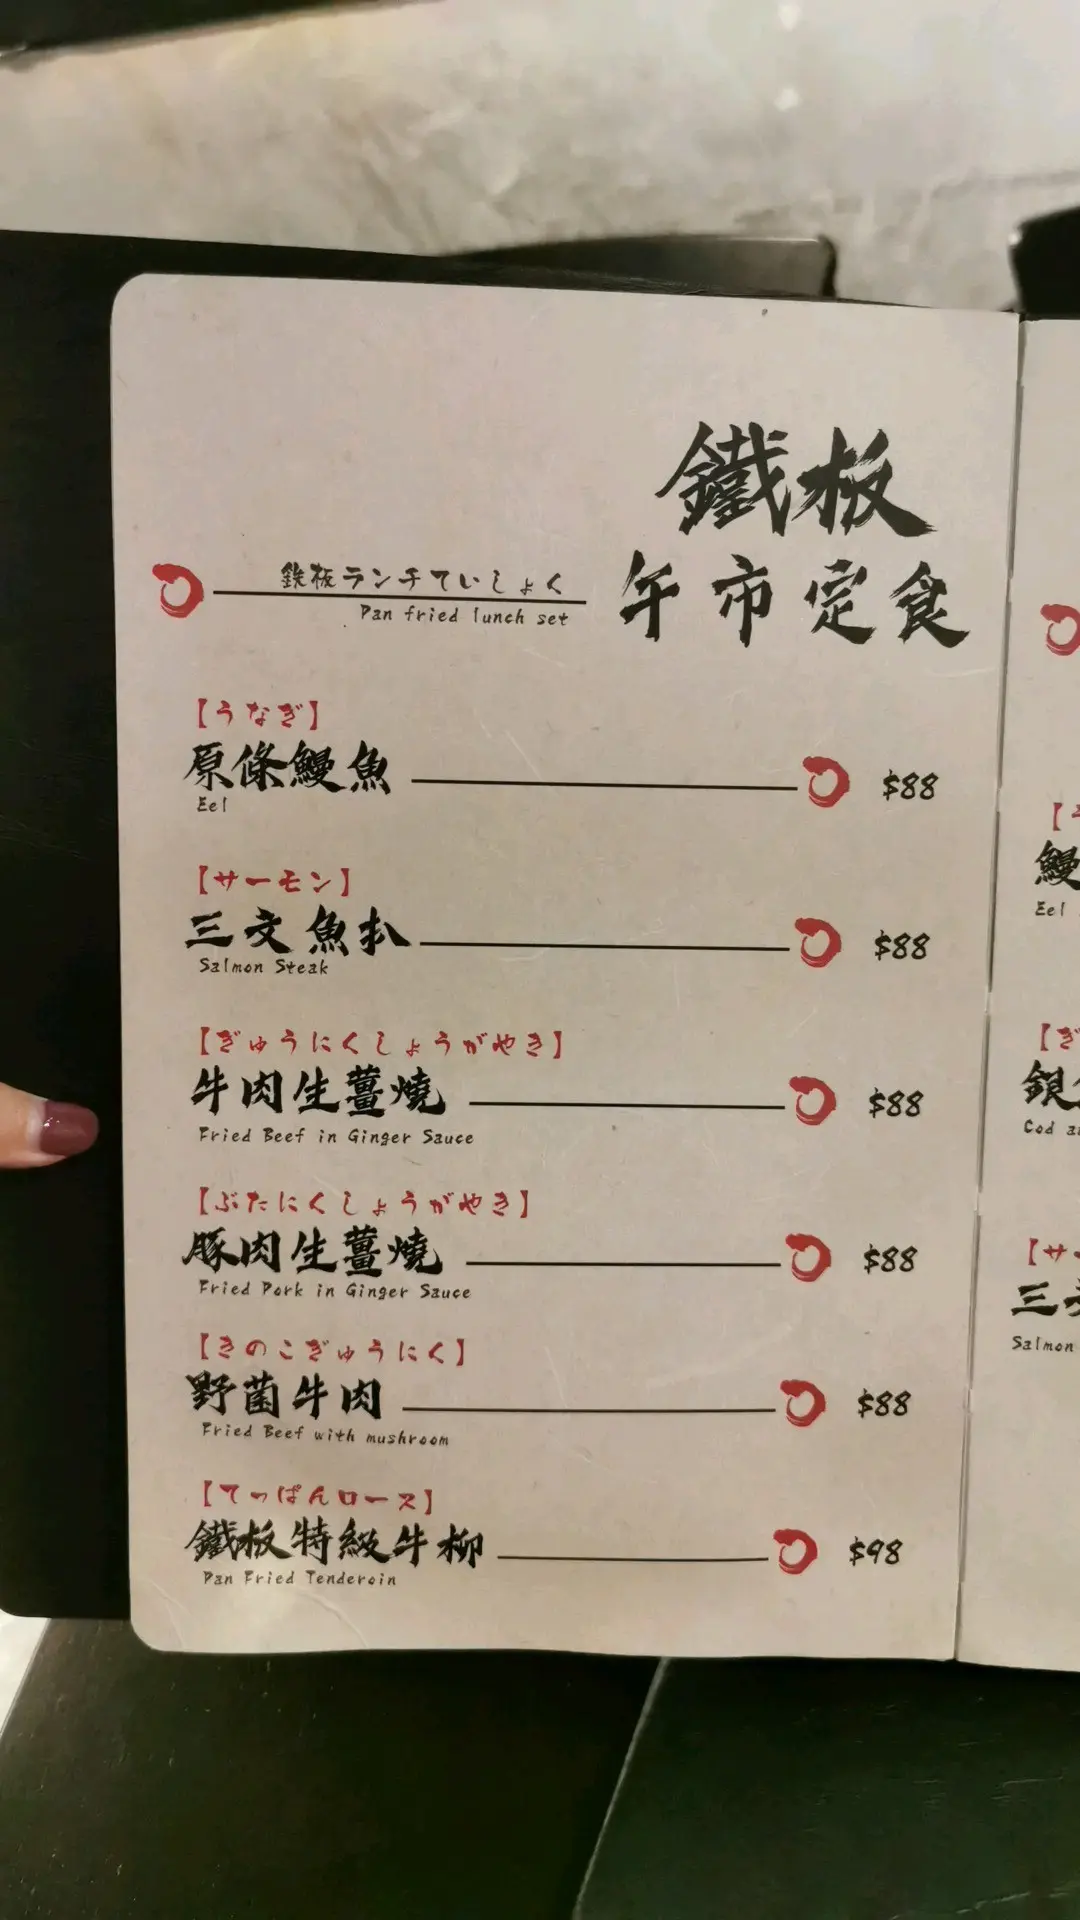 鐵板
午市定食
鉄板ランチていしょく
Pan fried lunch set
【うなぎ】
原條鰻魚 $88
Eel
【サーモン】
三文魚扒 $88
Salmon Steak
【ぎゅうにくしょうがやき】
牛肉生薑燒 $88
Fried Beef in Ginger Sauce
【ぶたにくしょうがやき】
豚肉生薑燒 $88
Fried Pork in Ginger Sauce
【きのこぎゅうにく】
野菌牛肉 $88
Fried Beef with mushroom
【てっぱんロース】
鐵板特級牛柳 $98
Pan Fried Tenderoin
【う
鰻
Eel
【ぎ
銀
Cod
【サー
三文
Salmon